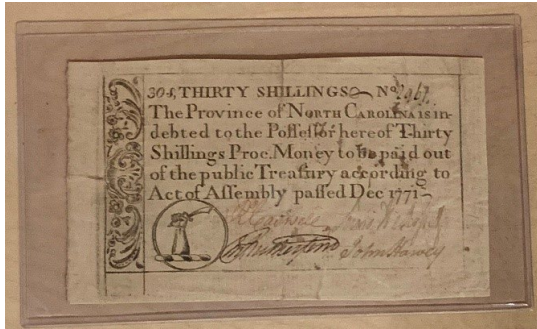 30s, THIRTY SHILLINGS No 2967.
The Province of NORTH CAROLINA is in-
debted to the Poſſeſſor hereof Thirty
Shillings Proc. Money to be paid out
of the public Treaſury according to
Act of Aſſembly paſſed Dec 1771
John Harvey